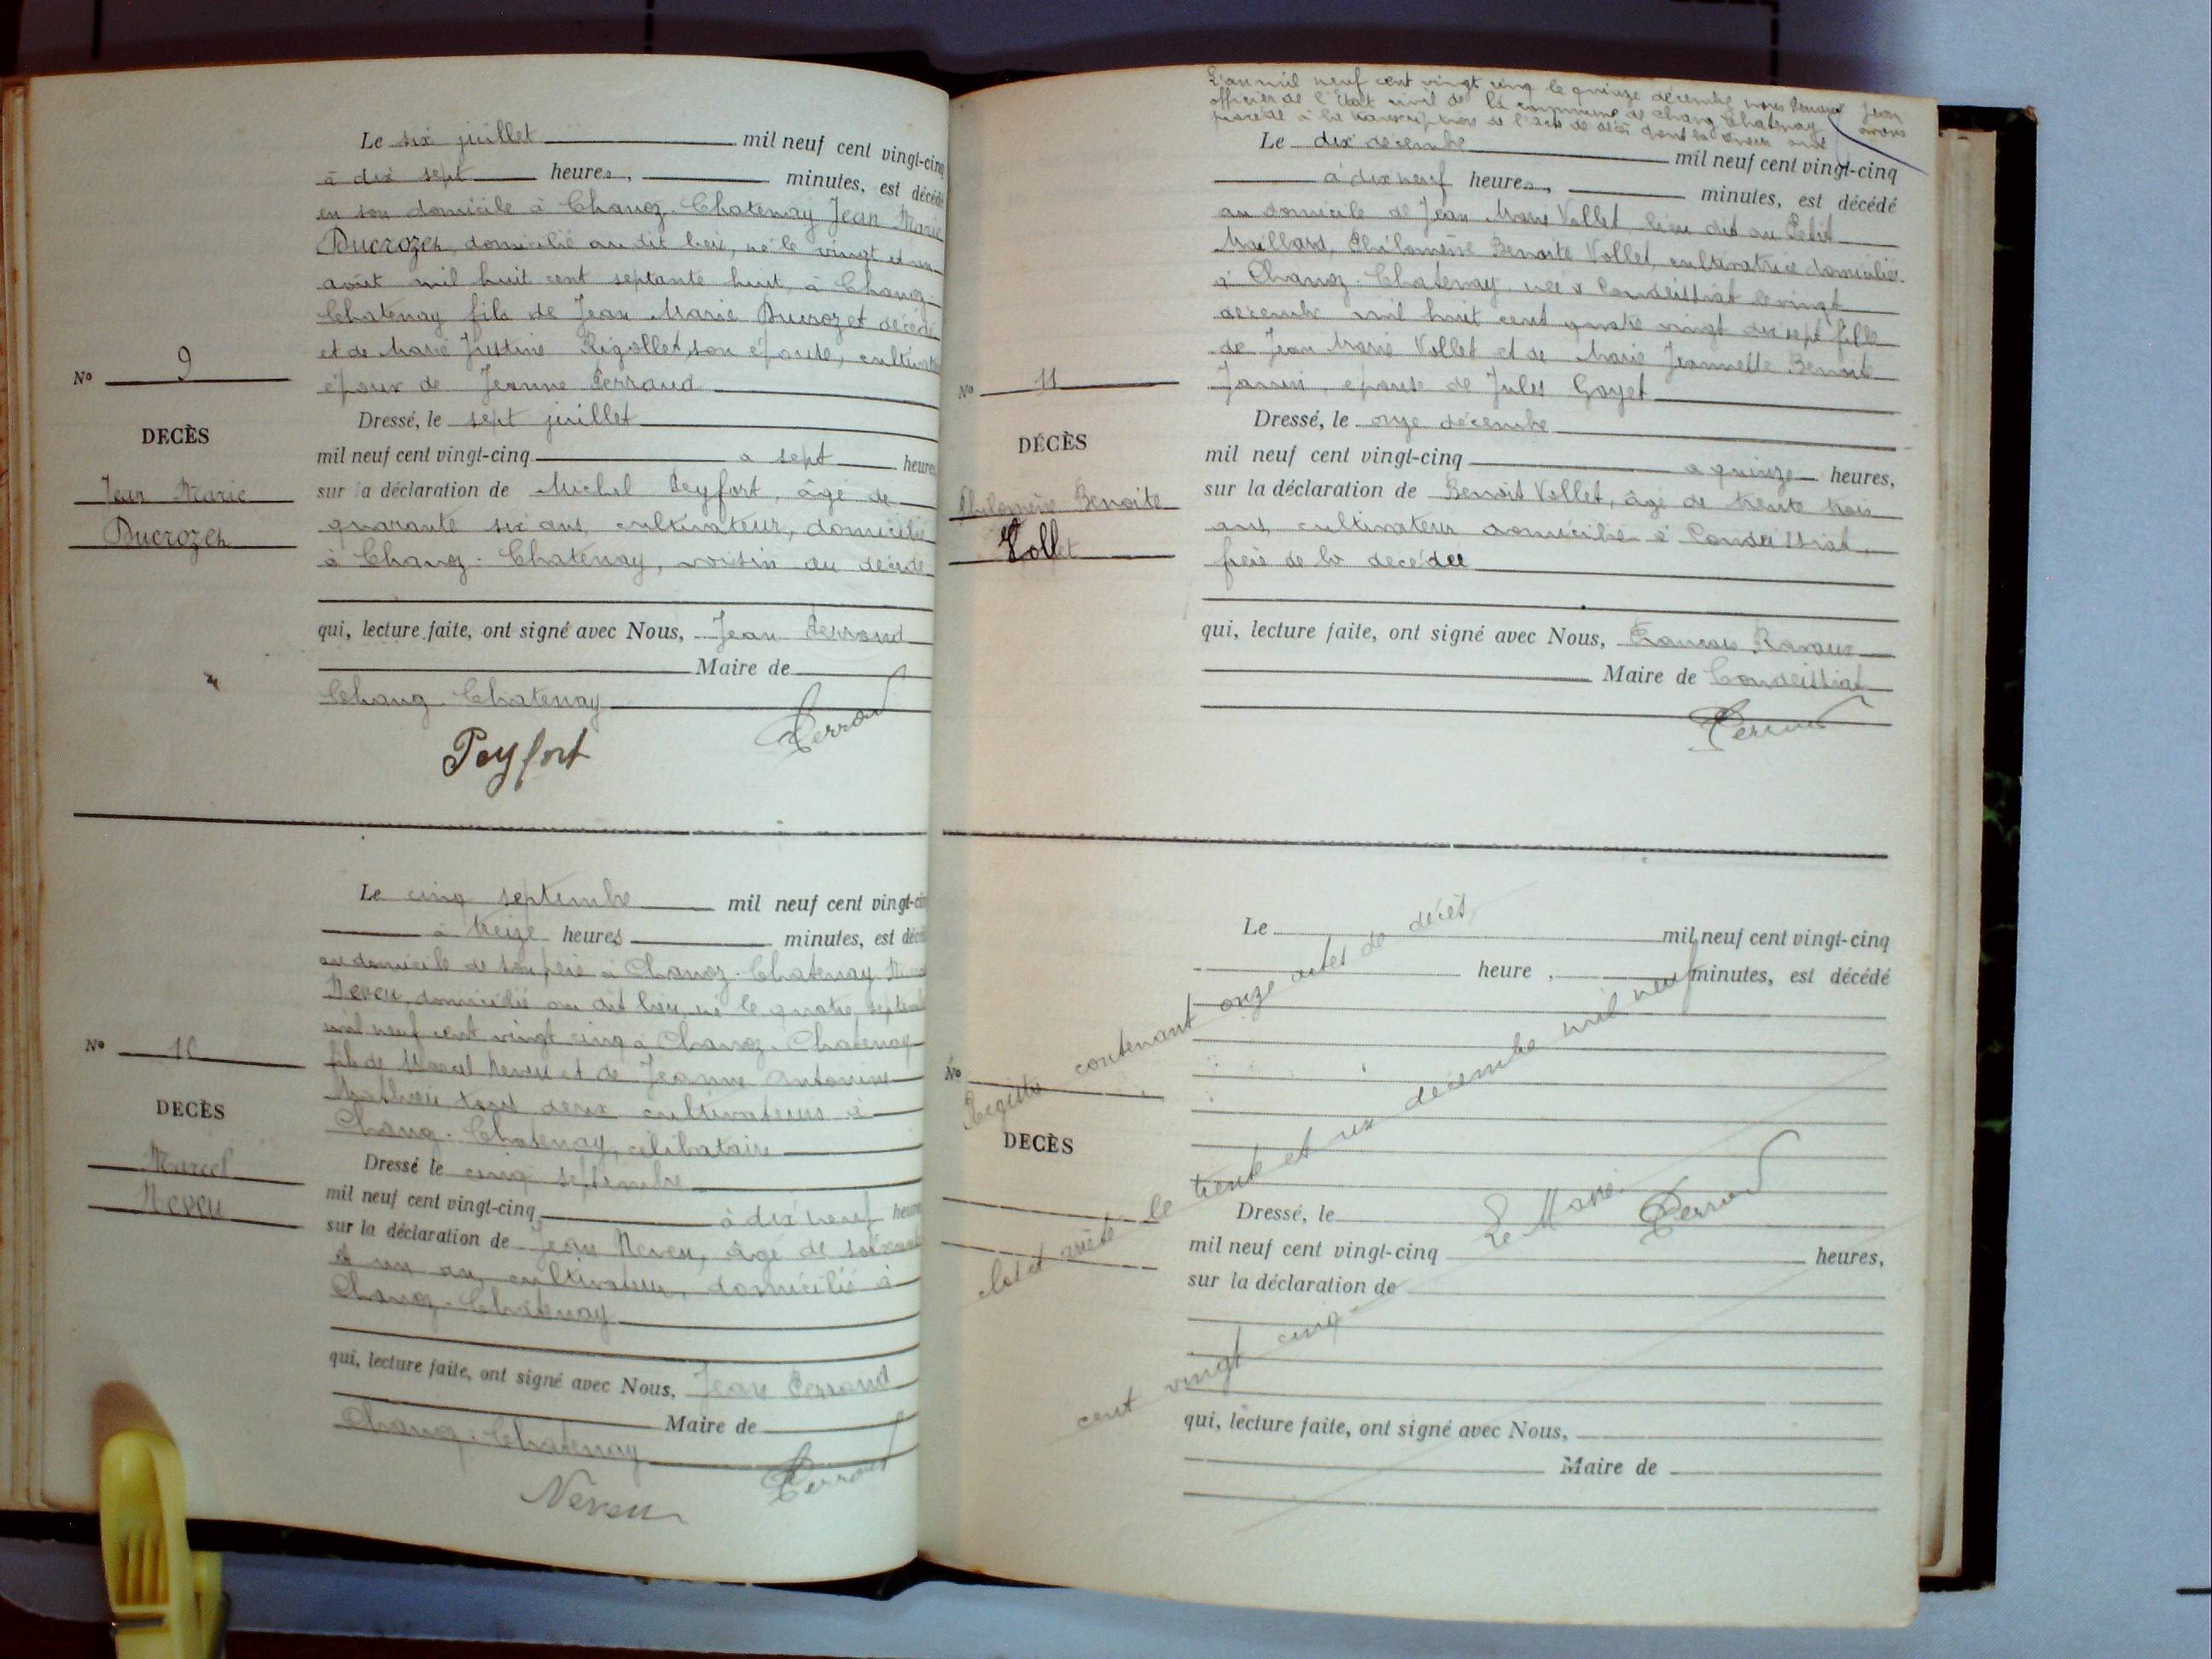 Le six juillet mil neuf cent vingt-cinq
à dix sept heures, minutes, est décédé
en son domicile à Chanoz-Chatenay Jean Marie
Ducrozet, domicilié au dit lieu, né le vingt et un
août mil huit cent septante huit, à Chanoz-
Chatenay fils de Jean Marie Ducrozet décédé
et de Marie Justine Rigollet, son épouse,
époux de Jeanne Perraud
N° 9
DECÈS
Jean Marie
Ducrozet
Dressé, le sept juillet
mil neuf cent vingt-cinq a sept heures
sur la déclaration de Michel Peyfort, âgé de
quarante six ans, cultivateur, domicilié
à Chanoz-Chatenay, voisin du décédé
qui, lecture faite, ont signé avec Nous, Jean Perraud
Maire de
Chanoz Chatenay
Peyfort Perraud
Le cinq septembre mil neuf cent vingt-cinq
à treize heures minutes, est décédé
au domicile de son père à Chanoz-Chatenay
Neveu, domicilié au dit lieu, né le quatre septembre
mil neuf cent vingt cinq à Chanoz-Chatenay
fils de Marcel Neveu et de Jeanne Antonine
Mathieu, tous deux cultivateurs à
Chanoz-Chatenay, célibataire
N° 10
DECÈS
Marcel
Neveu
Dressé le cinq septembre
mil neuf cent vingt-cinq à dix neuf heures
sur la déclaration de Jean Neveu, âgé de soixante
et un an, cultivateur, domicilié à
Chanoz-Chatenay
qui, lecture faite, ont signé avec Nous, Jean Perraud
Maire de
Chanoz-Chatenay
Neveu Perraud
L'an mil neuf cent vingt cinq le quinze décembre nous Perraud Jean
officier de l'état civil de la commune de Chanoz Chatenay avons
procédé à la transcription de l'acte de décès dont la teneur suit
Le dix décembre mil neuf cent vingt-cinq
à dix neuf heures, minutes, est décédé
au domicile de Jean Marie Vollet, lieu dit au Petit
Maillard, Philomène Benoite Vollet, cultivatrice domiciliée
à Chanoz-Chatenay née à Condeissiat le vingt
décembre mil huit cent quatre vingt dix sept fille
de Jean Marie Vollet et de Marie Jeannette Benoite
Janin, épouse de Jules Goyet
N° 11
DÉCÈS
Philomène Benoite
Vollet
Dressé, le onze décembre
mil neuf cent vingt-cinq a quinze heures,
sur la déclaration de Benoit Vollet, âgé de trente trois
ans, cultivateur domicilié à Condeissiat,
frère de la décédée
qui, lecture faite, ont signé avec Nous, François Ravaux
Maire de Condeissiat
Perraud
Le mil neuf cent vingt-cinq
heure, minutes, est décédé
N°
DECÈS
Registre contenant onze actes de décès,
clos et arrêté le trente et un décembre mil neuf
cent vingt cinq
Le Maire
Perraud
Dressé, le
mil neuf cent vingt-cinq heures,
sur la déclaration de
qui, lecture faite, ont signé avec Nous,
Maire de